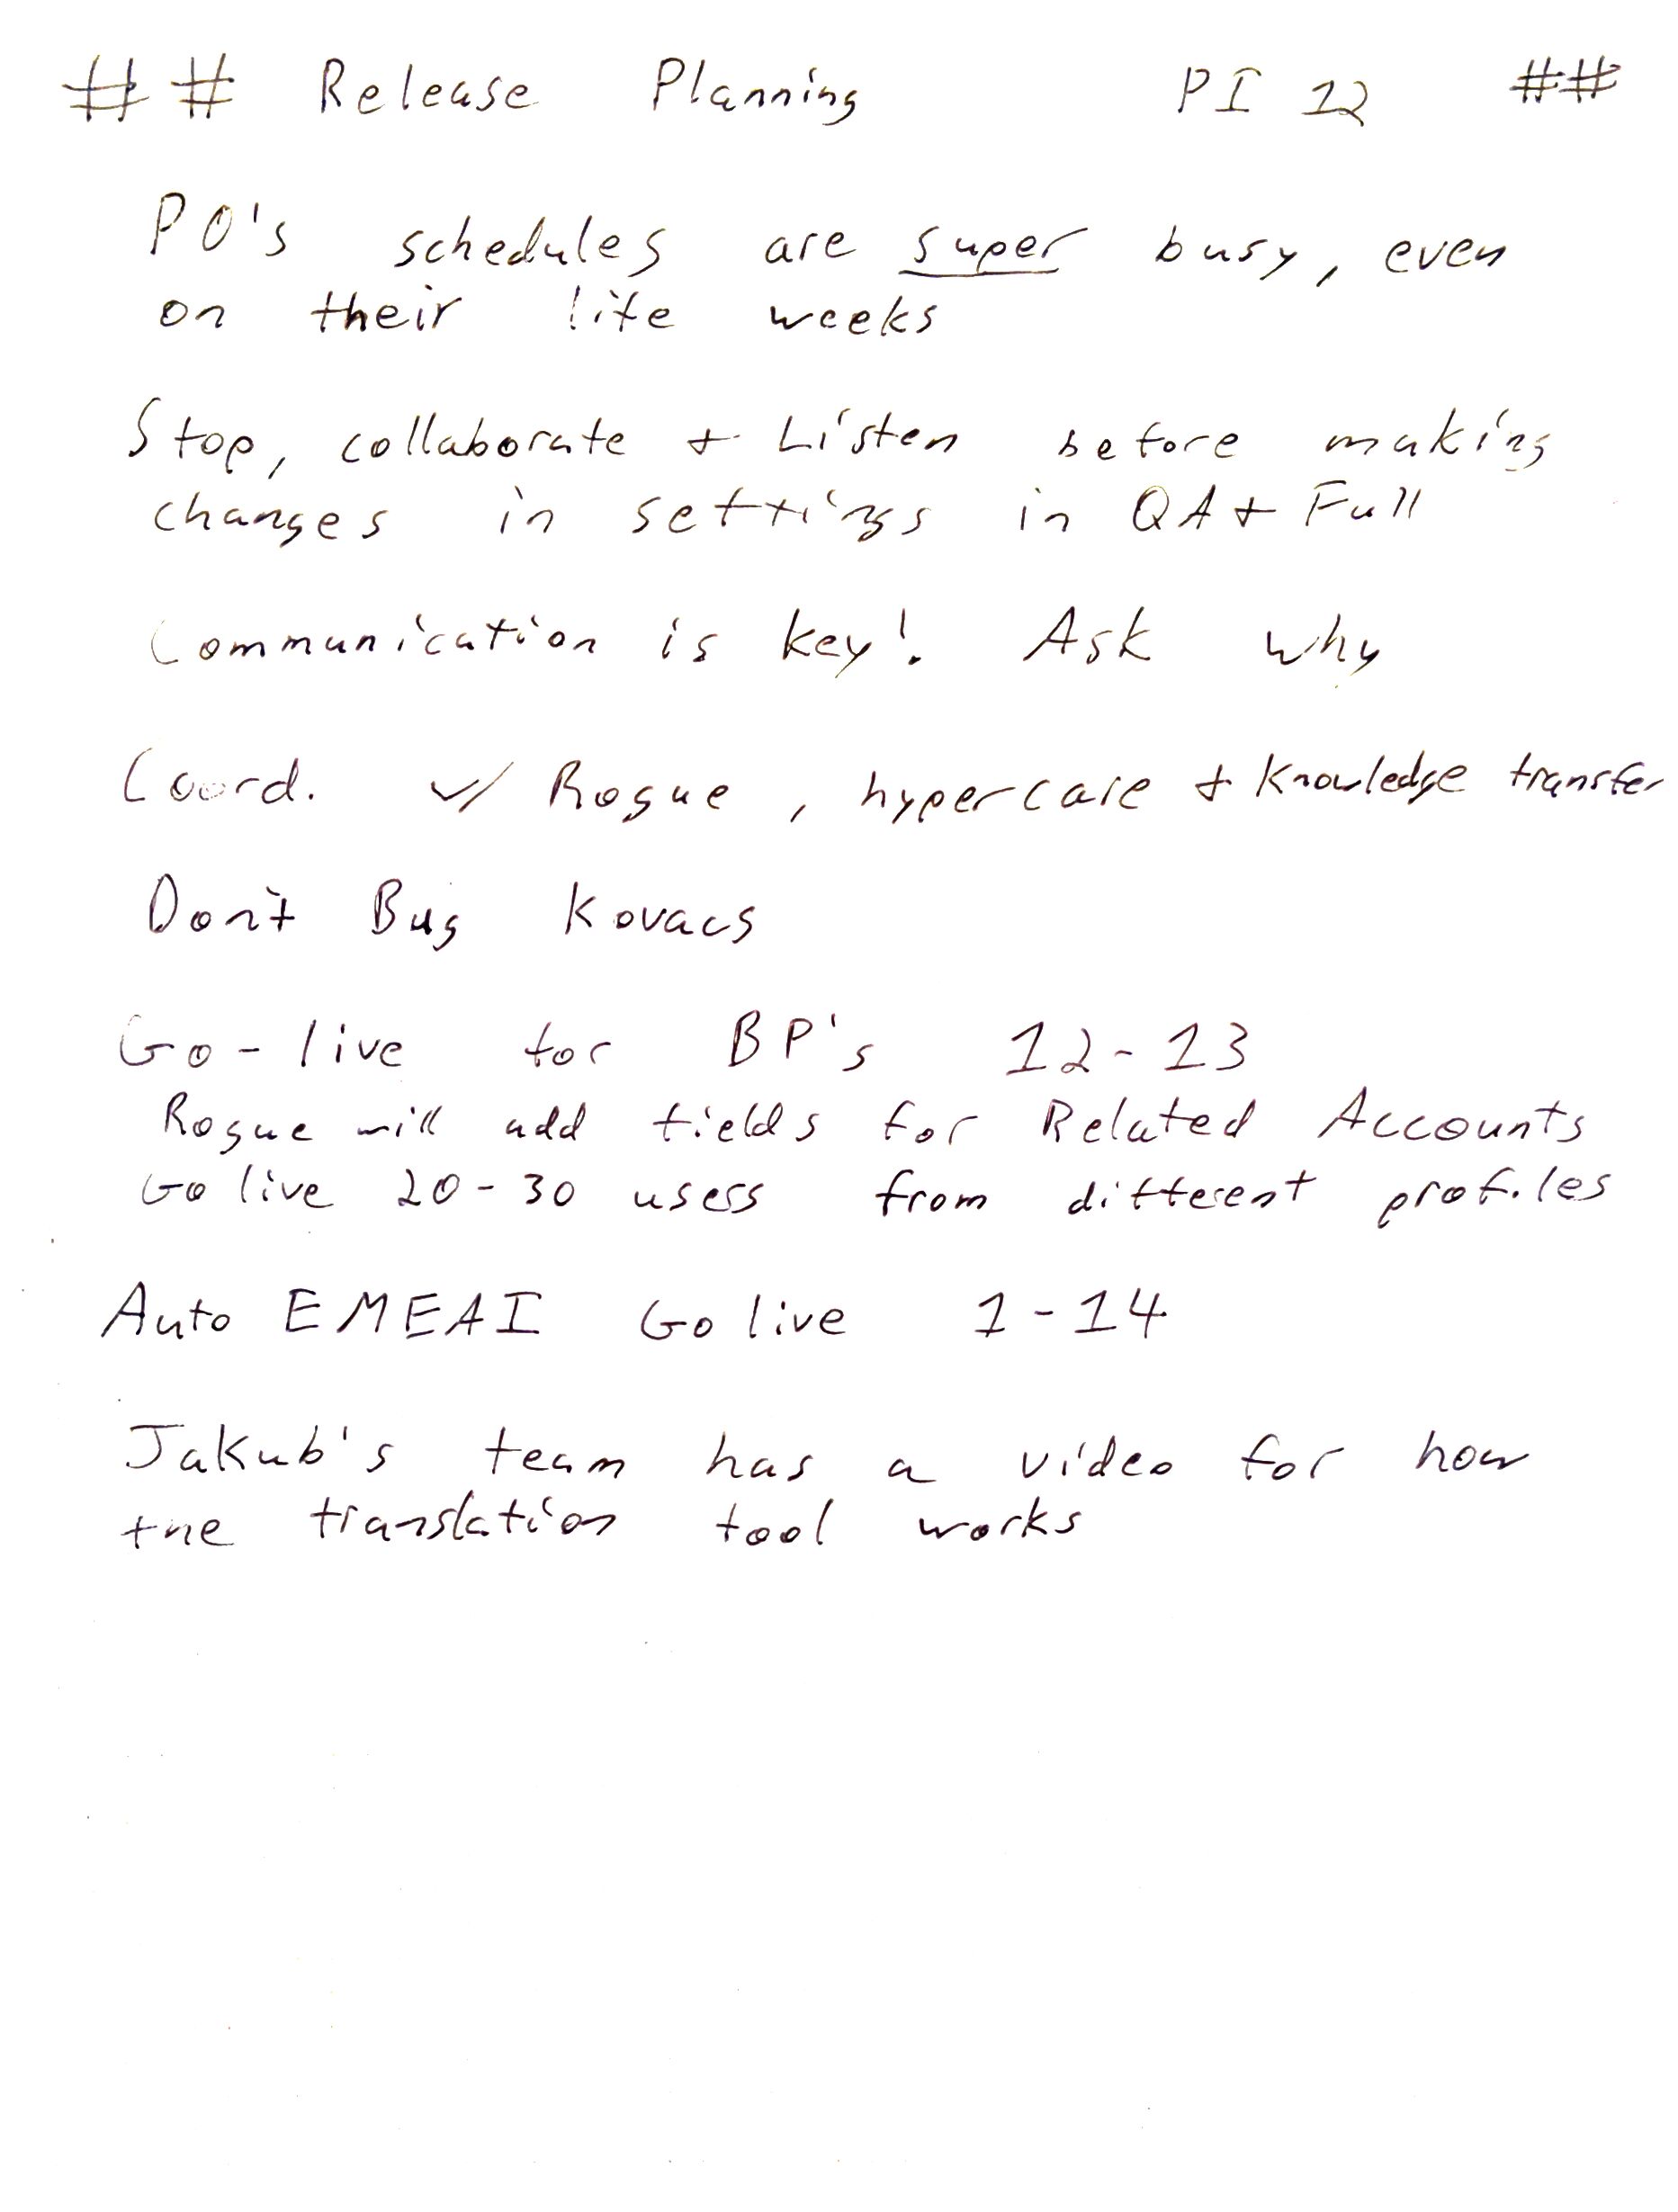 ## Release Planning PI 12 ##
PO's schedules are super busy, even
on their lite weeks
Stop, collaborate + Listen before making
changes in settings in QA + Full
Communication is key! Ask why
Coord. w/ Rogue, hypercare + Knowledge transfer
Don't Bug Kovacs
Go-live for BP's 12-13
Rogue will add fields for Related Accounts
Go live 20-30 users from different profiles
Auto EMEAI Go live 1-14
Jakub's team has a video for how
the translation tool works